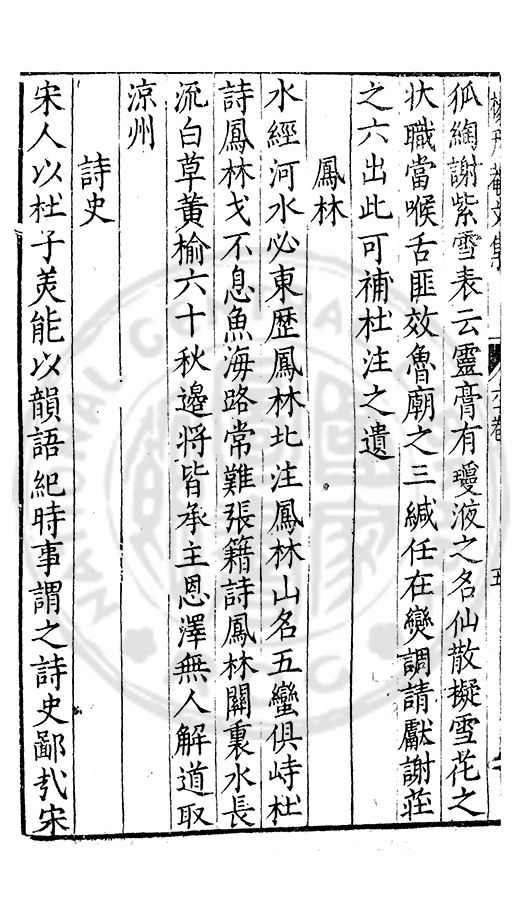 楊升菴文集
六十卷
五
狐綯謝紫雪表云靈膏有瓊液之名仙散擬雪花之
狀職當喉舌匪效魯廟之三緘任在爕調請獻謝莊
之六出此可補杜注之遺
鳳林
水經河水必東歷鳳林北注鳳林山名五巒俱峙杜
詩鳳林戈不息魚海路常難張籍詩鳳林關裏水長
流白草黃榆六十秋邊將皆承主恩澤無人解道取
涼州
詩史
宋人以杜子美能以韻語紀時事謂之詩史鄙㢤宋